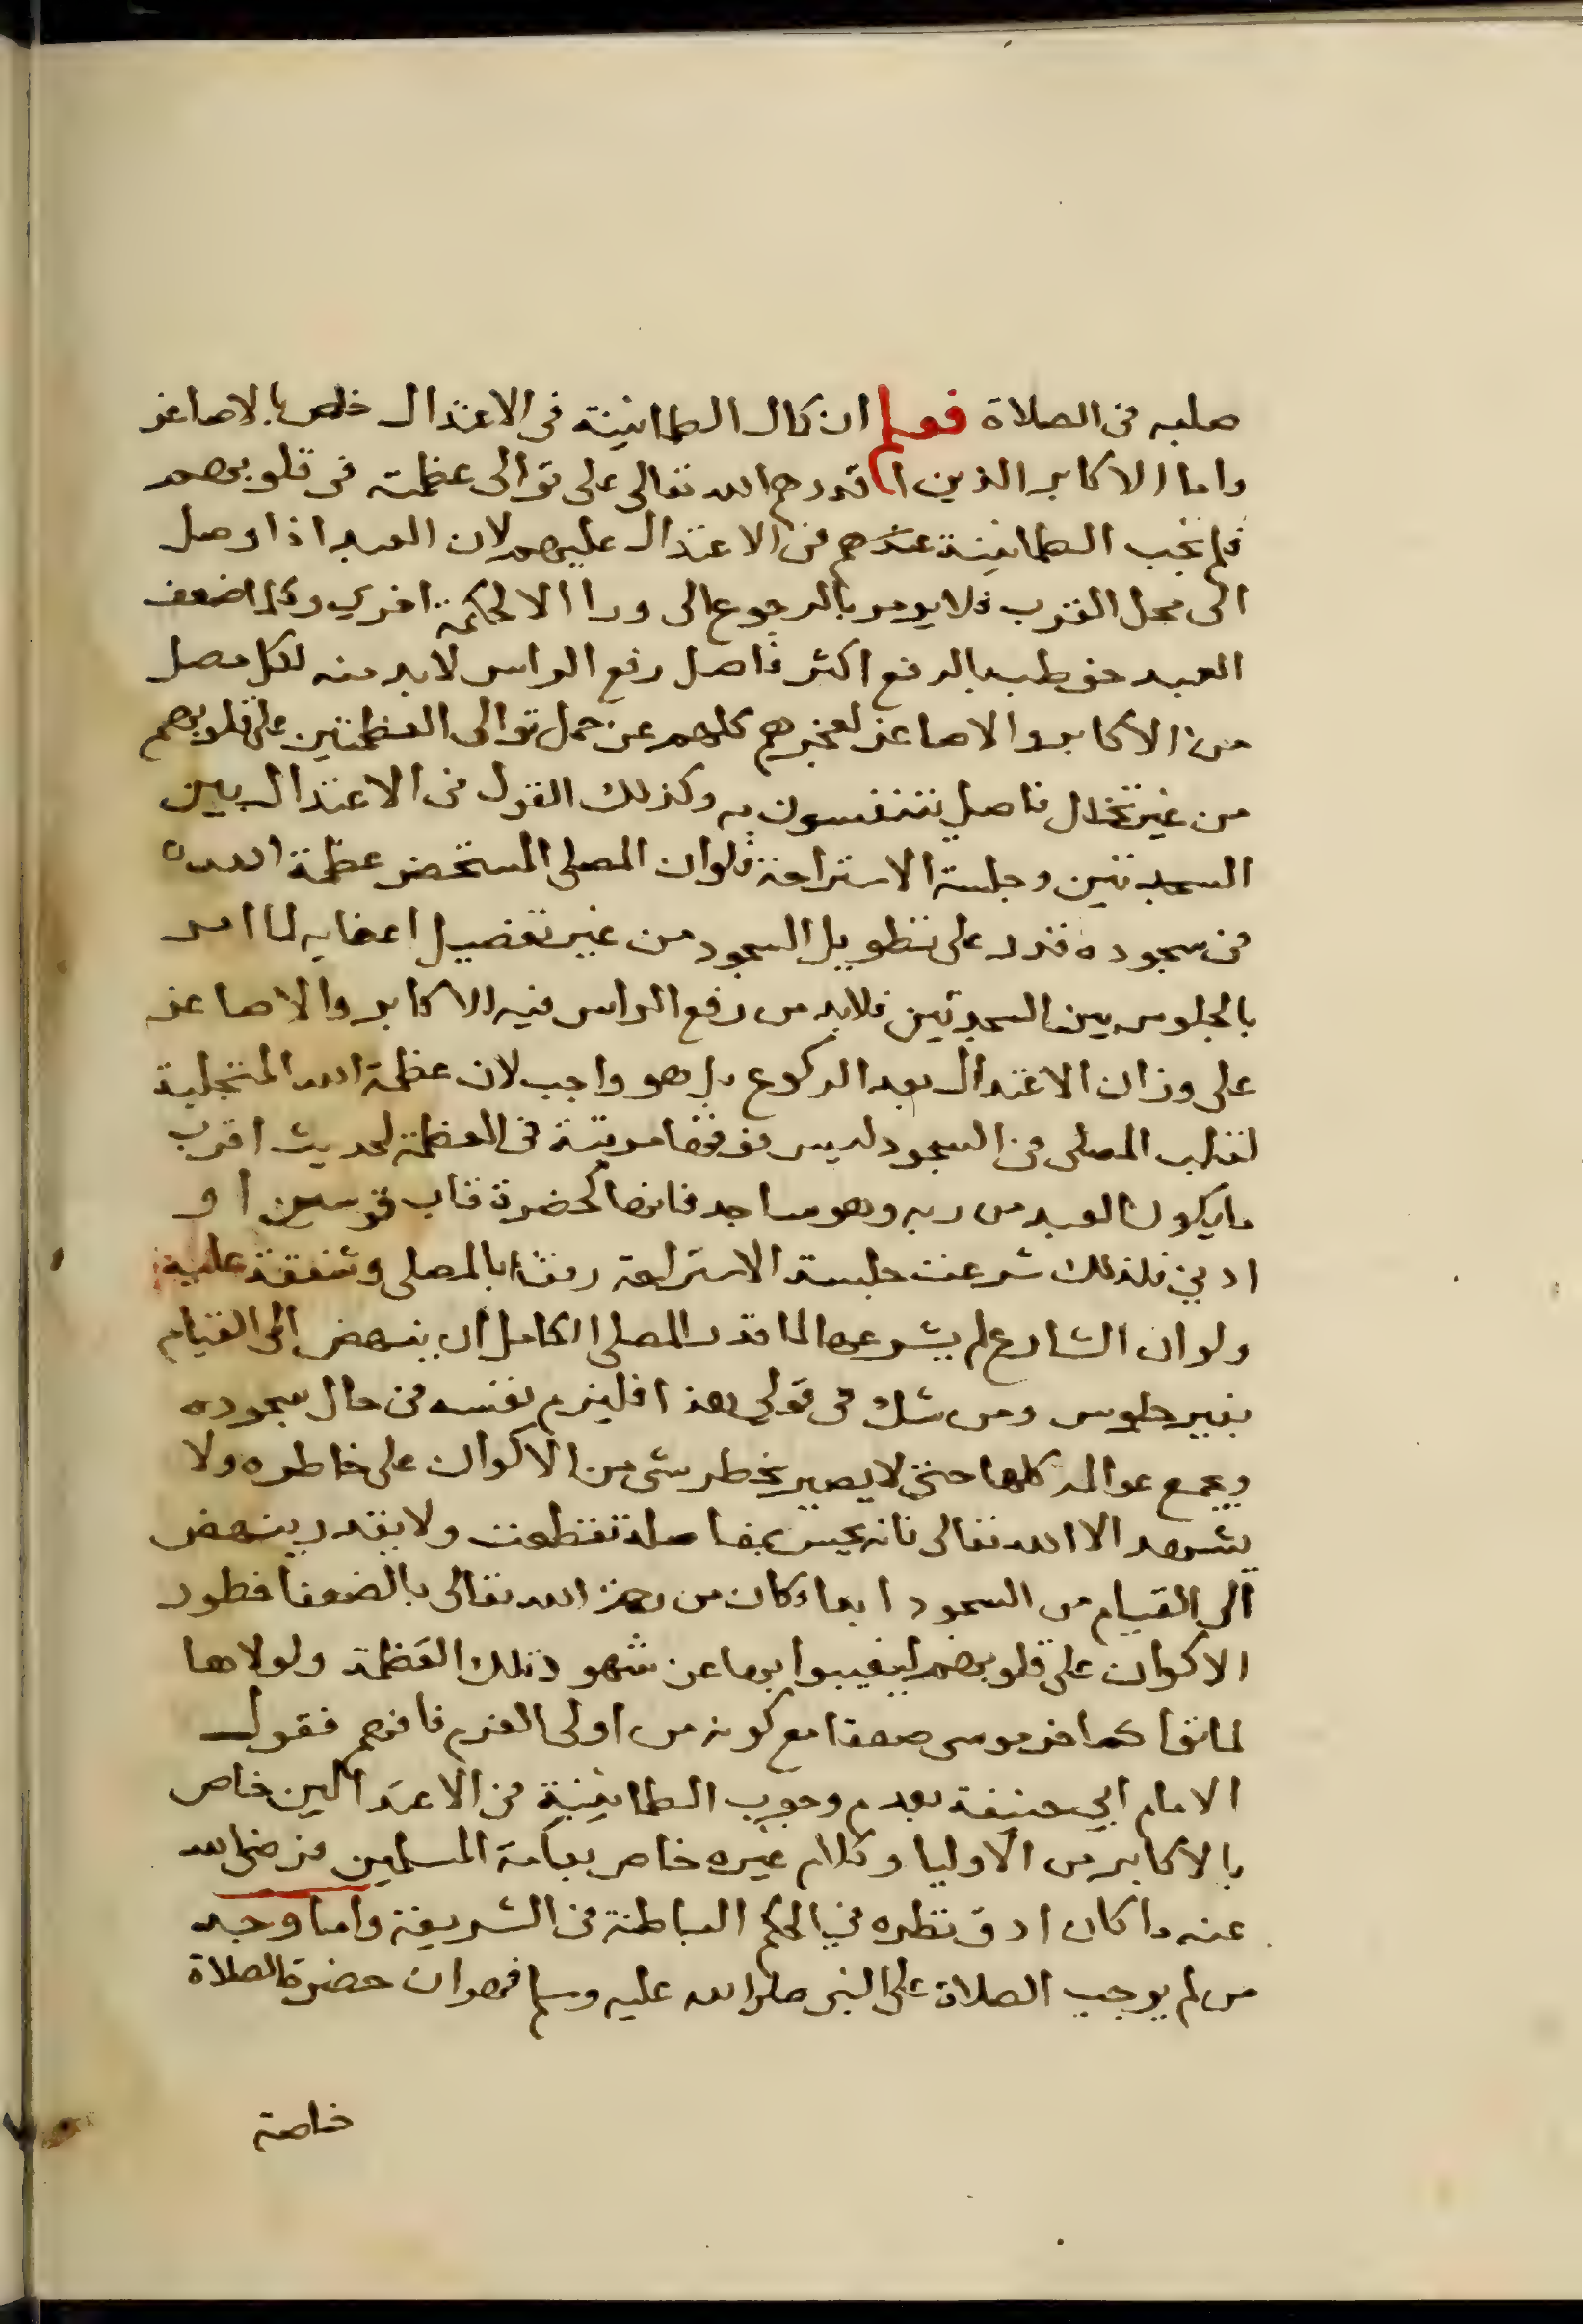 صلبه فى الصلاة فعلم ان كال الطمانينة فى الاعتدال خاص بالاصاغر
واما الاكابر الذين اقدرهم الله تعالى على توالى عظمته فى قلوبهم
فلم تجب الطمانينة عندهم فى الاعتدال عليهم لان العبد اذا وصل
الى محل القرب فلا يومر بالرجوع الى ورا الا لحكمة اخري وكلما ضعف
العبد خوطب بالرفع اكثر فاصل رفع الراس لابد منه لكل مصل
من الاكابر والاصاغر لعجزهم كلهم عن حمل توالى العظمتين على قلوبهم
من غير تخلل فاصل يتنفسون به وكذلك القول فى الاعتدال بين
السجدتين وجلسة الاستراحة فلوان المصلى المستحضر عظمة الله
فى سجوده قدر على تطويل السجود من غير تفصيل اعضايه لما امر
بالجلوس بين السجدتين فلابد من رفع الراس فيه للاكابر والاصاغر
على وزان الاعتدال بعد الركوع بل هو واجب لان عظمة الله المتجلية
لقلب المصلى فى السجود ليس فوقها مرتبة فى العظمة لحديث اقرب
مايكون العبد من ربه وهو ساجد فانها كحضرة قاب قوسين او
ادني فلذلك شرعت جلسة الاستراحة رفقا بالمصلى وشفقة عليه
ولوان الشارع لم يشرعها لما قدر المصلى الكامل ان ينهض الى القيام
بغير جلوس ومن شك فى قولي هذا فليلزم نفسه فى حال سجوده
ويجمع عوالمه كلها حتى لا يصير يخطر شى من الاكوان على خاطره ولا
يشهد الا الله تعالى فانه يحس بمفاصله تقطعت ولا يقدر ينهض
الى القيام من السجود ابدا وكان من رحمة الله تعالى بالضعفا خطور
الاكوان على قلوبهم ليغيبوا بها عن شهود تلك العظمة ولولاها
لماتوا كما خر موسى صعقا مع كونه من اولى العزم فافهم فقول
الامام ابي حنيفة بعدم وجوب الطمانينة فى الاعتدالين خاص
بالاكابر من الاوليا وكلام غيره خاص بعامة المسلمين فرضى الله
عنه ما كان ادق نظره في الحكم الباطنة فى الشريعة واما وجه
من لم يوجب الصلاة على النبى صلى الله عليه وسلم فهو ان حضرة الصلاة
خاصة